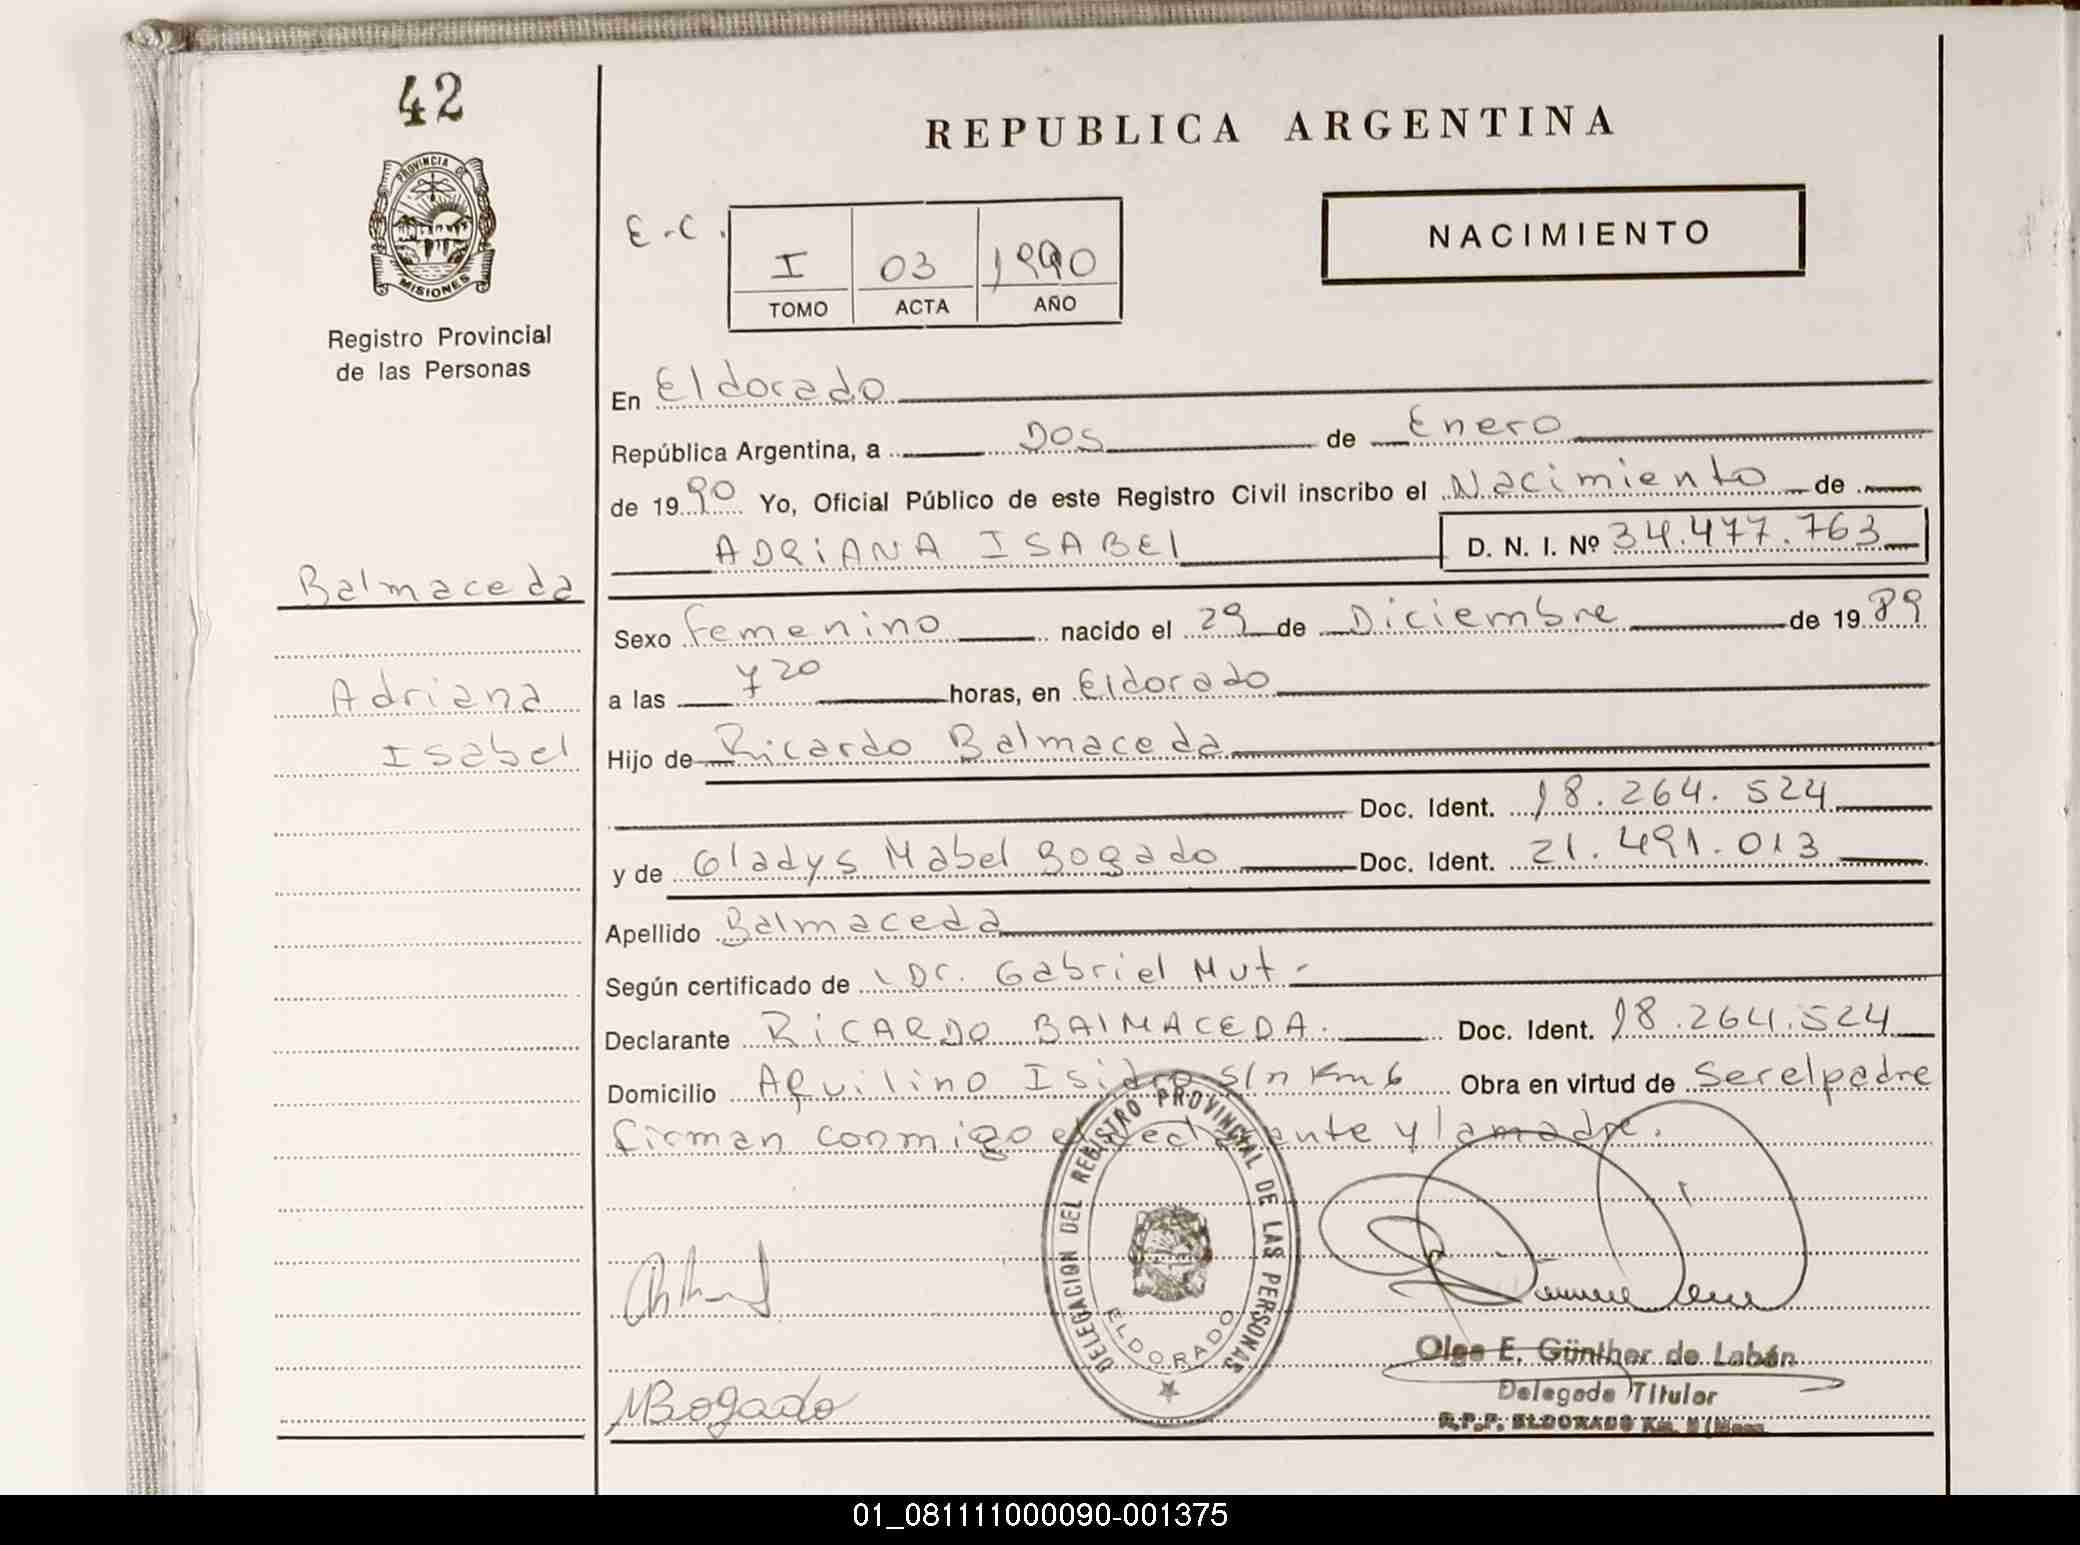 42
PROVINCIA DE
MISIONES
Registro Provincial
de las Personas
Balmaceda
Adriana
Isabel
REPUBLICA ARGENTINA
E.C.
I 03 1990
TOMO ACTA AÑO
NACIMIENTO
En Eldorado
República Argentina, a Dos de Enero
de 1990 Yo, Oficial Público de este Registro Civil inscribo el Nacimiento de
ADRIANA ISABEL D. N. I. Nº 34.477.763
Sexo Femenino nacido el 29 de Diciembre de 1989
a las 7 20 horas, en Eldorado
Hijo de Ricardo Balmaceda
Doc. Ident. 18.264.524
y de Gladys Mabel Bogado Doc. Ident. 21.491.013
Apellido Balmaceda
Según certificado de Dr. Gabriel Mut -
Declarante RICARDO BALMACEDA. Doc. Ident. 18.264.524
Domicilio Aquilino Isidro s/n Km 6 Obra en virtud de ser el padre
firman conmigo el declarante y la madre.
DELEGACION DEL REGISTRO PROVINCIAL DE LAS PERSONAS
ELDORADO
MBogado
Olga E. Günther de Labán
Delegada Titular
R.P.P. ELDORADO Km.
01_081111000090-001375